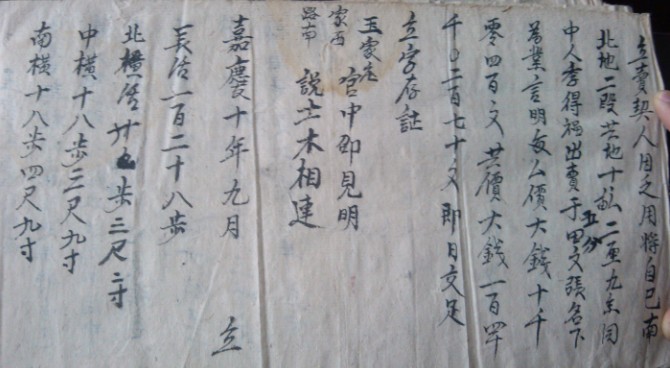 立賣契人因乏用將自己南
北地二段共地十畝二至九亩同
五分
中人李得福出賣于田文張名下
為業言明每公價大錢十千
零四百文共價大錢一百四
千〇二百七十文即日交足
立字存証
玉家庄
家西 宫中卲見明
路南 説土木相連
嘉慶十年九月 立
長活一百二十八步
北橫活廿步三尺二寸
中橫十八步二尺九寸
南橫十八步四尺九寸